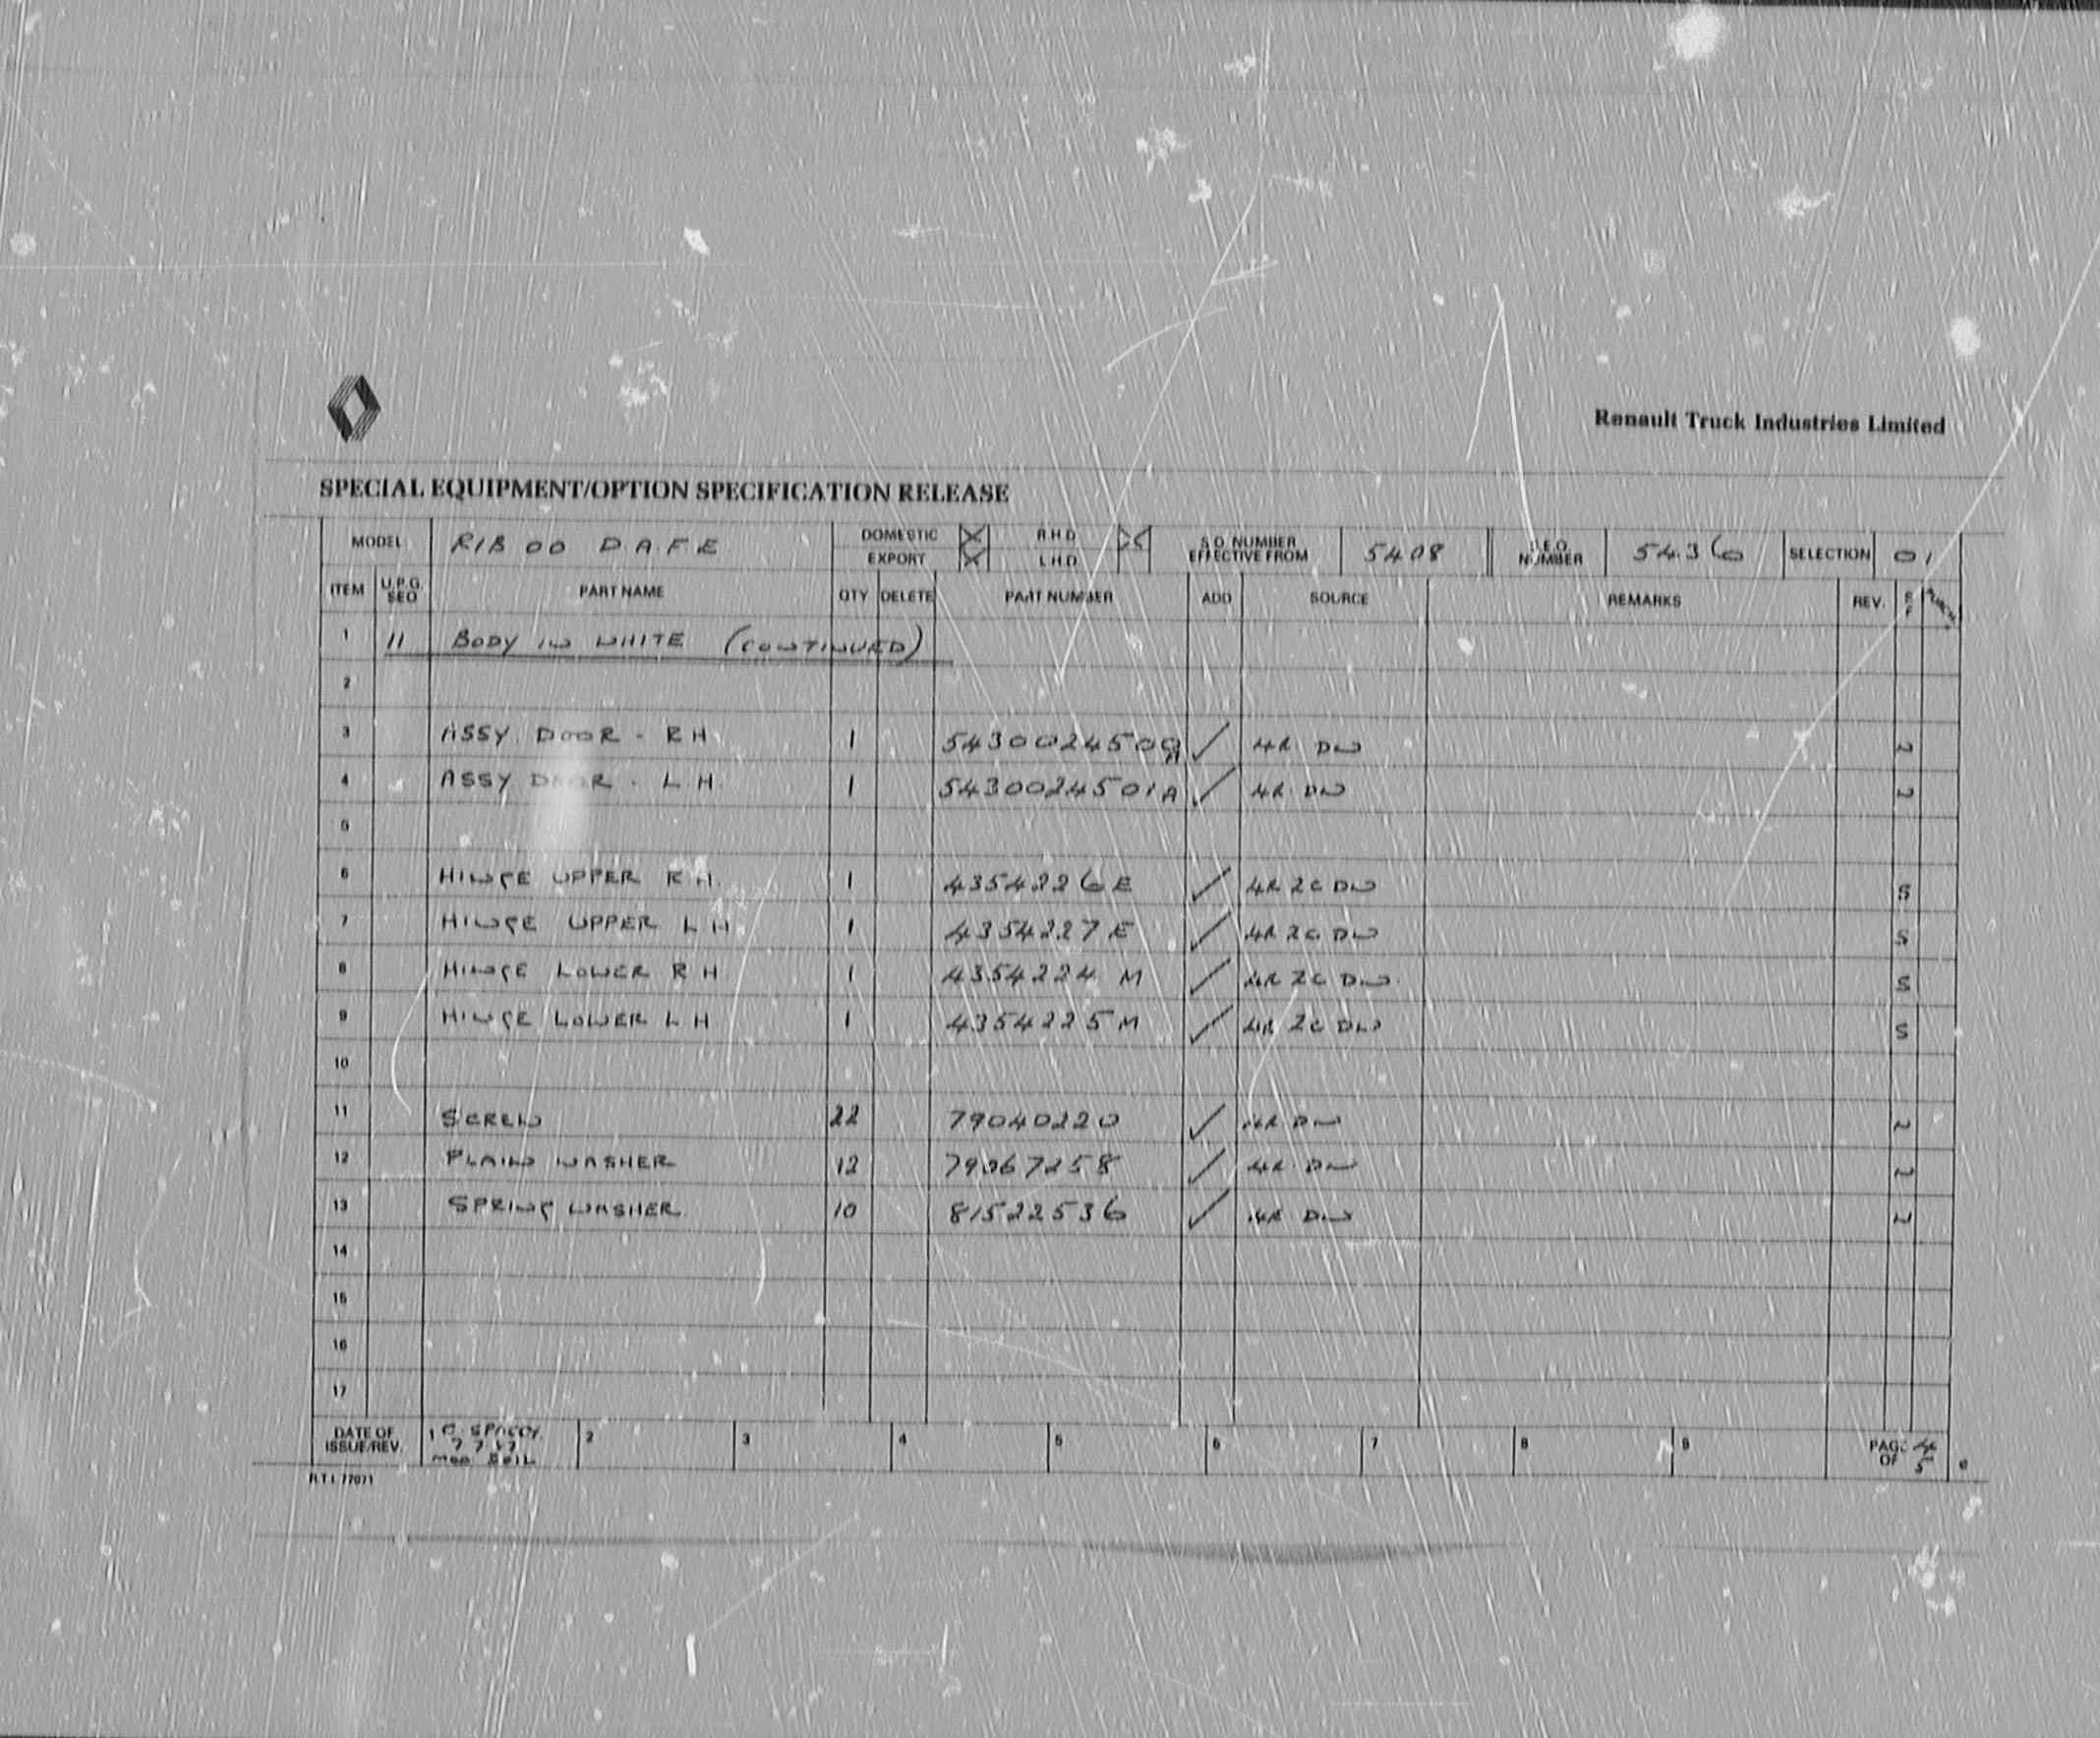 Renault Truck Industries Limited
SPECIAL EQUIPMENT/OPTION SPECIFICATION RELEASE
MODEL R1B 00 DAFE DOMESTIC X EXPORT X R.H.D X L.H.D S.O. NUMBER EFFECTIVE FROM 5408 S.E.O. NUMBER 5436 SELECTION 01
ITEM U.P.G. SEQ PART NAME QTY DELETE PART NUMBER ADD SOURCE REMARKS REV.
1 11 BODY IN WHITE (CONTINUED)
2
3 ASSY. DOOR - RH 1 5430024500A ✓ 4R DW N
4 ASSY DOOR - LH 1 5430024501A ✓ 4R DW N
5
6 HINGE UPPER RH. 1 4354226E ✓ 4R 2C DW S
7 HINGE UPPER LH. 1 4354227E ✓ 4R 2C DW S
8 HINGE LOWER RH 1 4354224 M ✓ 4R 2C DW S
9 HINGE LOWER LH 1 4354225M ✓ 4R 2C DW S
10
11 SCREW 22 79040220 ✓ 4R DW N
12 PLAIN WASHER 12 79067258 ✓ 4R DW N
13 SPRING WASHER 10 81522536 ✓ 4R DW N
14
15
16
17
DATE OF ISSUE/REV. 1 2 3 4 5 6 7 8 9 PAGE 4 OF 5
R.T.I. 77071